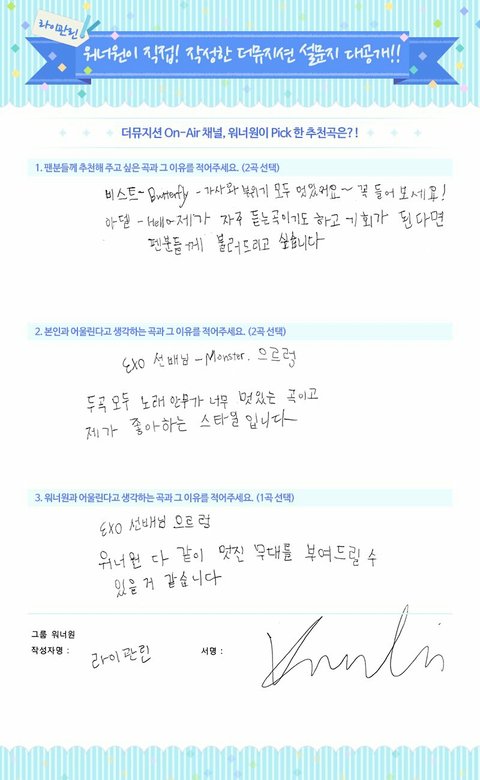 라이관린
워너원이 직접! 작성한 더뮤지션 설문지 대공개!!
더뮤지션 On-Air 채널, 워너원이 Pick 한 추천곡은?!
1. 팬분들께 추천해 주고 싶은 곡과 그 이유를 적어주세요. (2곡 선택)
비스트 - Butterfly - 가사와 분위기 모두 멋있어요~ 꼭 들어 보세요!
아델 - Hello 제가 자주 듣는 곡이기도 하고 기회가 된다면
팬분들께 불러드리고 싶습니다
2. 본인과 어울린다고 생각하는 곡과 그 이유를 적어주세요. (2곡 선택)
EXO 선배님 - Monster. 으르렁
두곡 모두 노래 안무가 너무 멋있는 곡이고
제가 좋아하는 스타일 입니다
3. 워너원과 어울린다고 생각하는 곡과 그 이유를 적어주세요. (1곡 선택)
EXO 선배님 으르렁
워너원 다 같이 멋진 무대를 부여드릴 수
있을 거 같습니다
그룹 워너원
작성자명 : 라이관린 서명 :